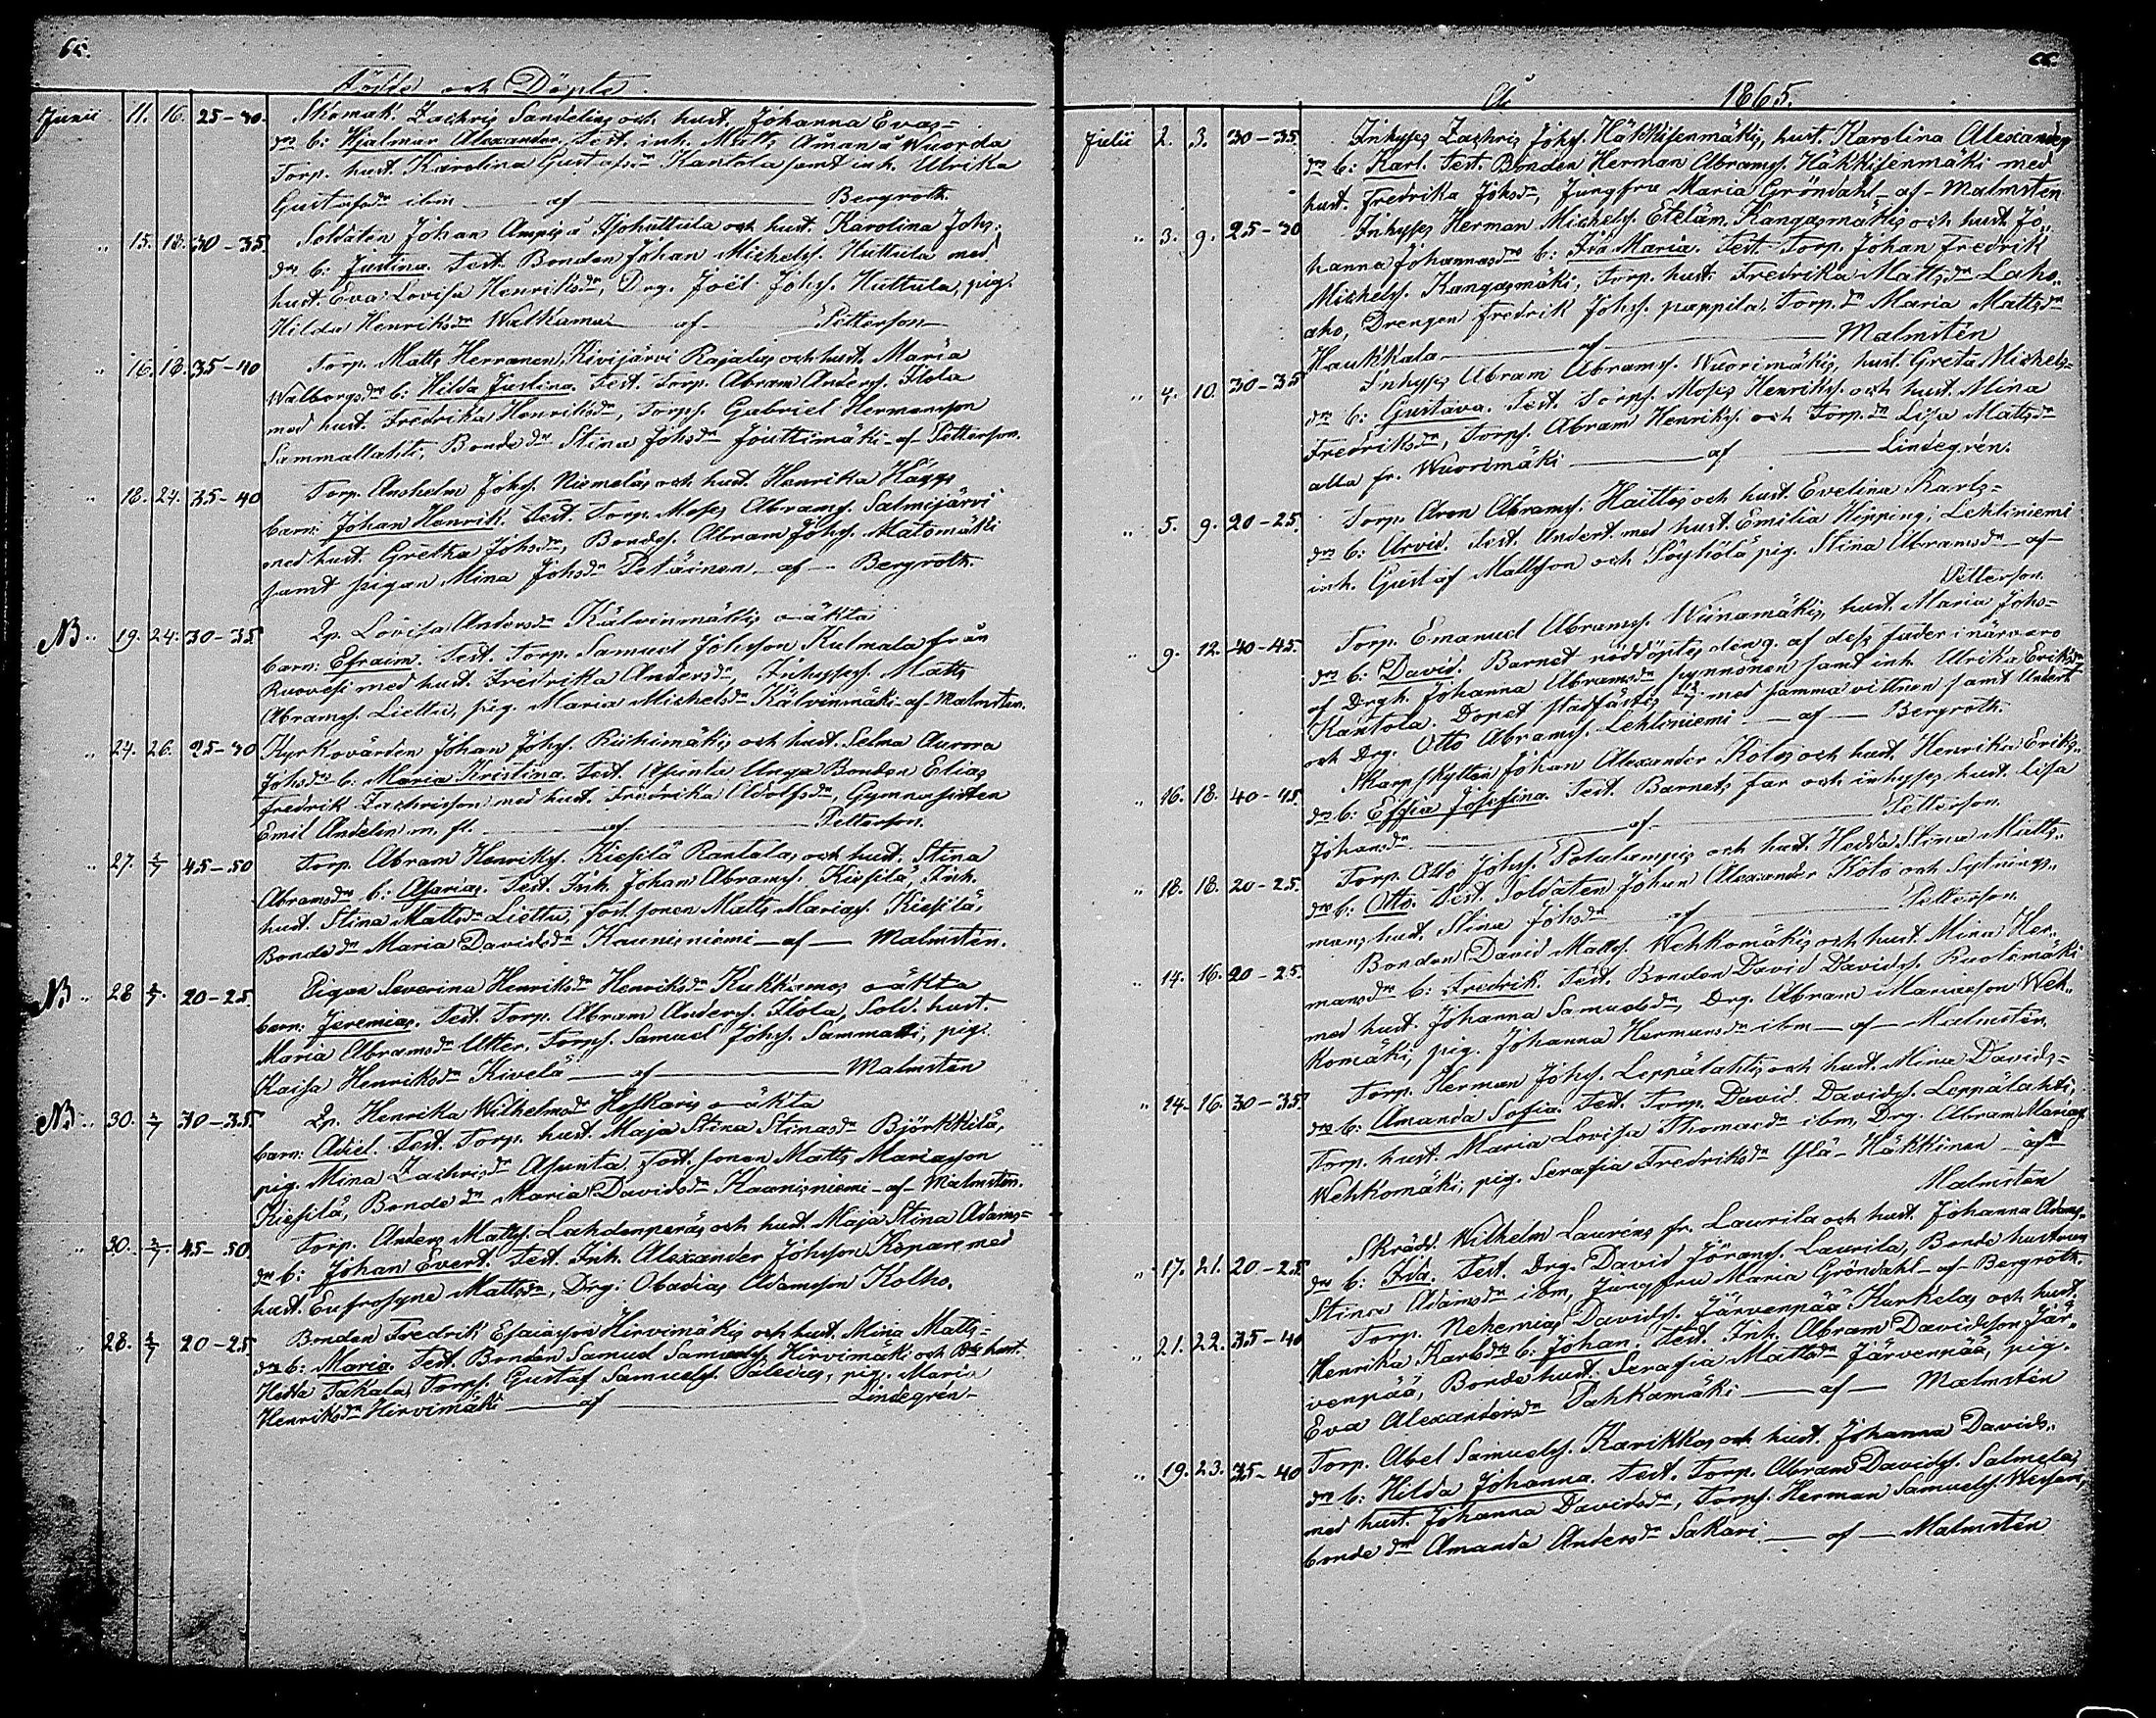 65.
Födde och Döpte
Junii 11. 16. 25-30. Skomak. Zachris Sandelins och hust. Johanna Evas=
drs b: Hjalmar Alexander. Test. inh. Matts Åman å Wuorela
Torp. hust. Karolina Gustafsdr Kantola samt inh. Ulrika
Gustafsdr ibm — af — Bergroth.
" 15. 18. 30-35 Soldaten Johan Ampis å Isohuttula och hust. Karolina Johs=
drs b: Justina. Test. Bonden Johan Michelss. Huttula med
hust. Eva Lovisa Henriksdr, Drg. Joël Johss. Huttula, pig.
Hilda Henriksdr Walkama — af — Petterson —
" 16. 18. 35-40 Torp. Matts Herranen, Kivijärvi Rajalas och hust. Maria
Walborgsdrs b: Hilda Justina. Test. Torp. Abram Anderss. Ilola
med hust. Fredrika Henriksdr, Torps. Gabriel Hermansson
Sammallahti, Bondedr Stina Johsdr Jouttimäki - af - Petterson.
" 18. 24. 35-40 Torp. Anshelm Johss. Niemeläs och hust. Henrika Häggs
barn: Johan Henrik. Test. Torp. Moses Abramss. Salmijärvi
med hust. Gretha Johsdr, Bondes. Abram Johss. Mätomäki
samt pigan Mina Johsdr Petäinen - af - Bergroth.
NB " 19. 24. 30-35 Qp. Lovisa Andersdr Kälvinmäkis oäkta
barn: Efraim. Test. Torp. Samuel Johsson Kulmala från
Ruovesi med hust. Fredrika Andersdr, Inhysess. Matts
Abramss. Liettu, pig. Maria Michelsdr Kälvinmäki - af - Malmstén.
" 24. 26. 25-30 Kyrkovärden Johan Johss. Riihimäkis och hust. Selma Aurora
Johsdrs b: Maria Kristina. Test. Asunta Unga Bonden Elias
Fredrik Zachrisson med hust. Fredrika Adolfsdr, Gymnasisten
Emil Andelin m. fl. — af — Petterson.
" 27. 2/7 45-50 Torp. Abram Henrikss. Kiesilä Rantalas och hust. Stina
Abramsdrs b: Asarias. Test. Inh. Johan Abramss. Kiesilä, Inh.
hust. Stina Mattsdr Liettu, fost. sonen Matts Mariass. Kiesilä,
Bondedr Maria Davidsdr Kaunisniemi — af — Malmstén.
NB " 28 2/7. 20-25. Pigan Severina Henriksdr Henriksdr Kukkismos oäkta
barn: Jeremias. Test. Torp. Abram Anderss. Ilola, Sold. hust.
Maria Abramsdr Utter, Torps. Samuel Johss. Sammatti, pig.
Kaisa Henriksdr Kivelä — af — Malmstén
NB " 30. 2/7 30-35. Qp. Henrika Wilhelmsdr Hyskaris oäkta
barn: Adiel. Test. Torp. hust. Maja Stina Stinasdr Björkkilä,
pig. Mina Zachrisdr Asunta. Fost. sonen Matts Mariasson
Kiesilä, Bondedr Maria Davidsdr Kaunisniemi - af - Malmstén.
" 30. 2/7. 45-50 Torp. Anders Mattss. Lahdenperäs och hust. Maja Stina Adams=
drs b: Johan Evert. Test. Inh. Alexander Johsson Kopare med
hust. Eufrosyne Mattsdr, Drg. Obadias Adamsson Kolho.
" 28. 2/7 20-25 Bonden Fredrik Esaiasson Hirvimäkis och hust. Mina Matts=
drs b: Maria. Test. Bonden Samuel Samuelss. Hirvimäki och hust.
Hedda Takala, Torps. Gustaf Samuelss. Salenius, pig. Maria
Henriksdr Hirvimäki — af — Lindegrén -
66.
År 1865.
Julii 2. 3. 30-35. Inhyses Zachris Johss. Häkkisenmäkis, hust. Karolina Alexanders
drs b: Karl. Test. Bonden Herman Abramss. Häkkisenmäki med
hust. Fredrika Johsdr, Jungfru Maria Gröndahl - af - Malmstén
" 3. 9. 25-30 Inhyses Herman Michelss. Eteläm. Kangasmäkis och hust. Jo=
hanna Johannasdrs b: Ida Maria. Test. Torp. Johan Fredrik
Michelss. Kangasmäki, Torp. hust. Fredrika Mattsdr Laho=
aho, Drengen Fredrik Johss. pappila, Torp. dr Maria Mattsdr
Haukkala — af — Malmstén
" 4. 10. 30-35 Inhyses Abram Abramss. Wuorimäkis, hust. Greta Michels=
drs b: Gustava. Test. Torps. Moses Henrikss. och hust. Mina
Fredriksdr, Torps. Abram Henrikss. och Torp. dr Lisa Mattsdr
alla fr. Wuorimäki — af — Lindegrén.
" 5. 9. 20-25. Torp. Aron Abramss. Haittos och hust. Evelina Karls=
drs b: Arvid. Test. Undert. med hust. Emilia Hipping; Lehtiniemi
inh. Gustaf Mattsson och Pöyhölä pig. Stina Abramsdr - af -
Petterson.
" 9. 12. 40-45. Torp. Emanuel Abramss. Wiinamäkis, hust. Maria Johs=
drs b: David. Barnet nöddöptes den 9. af dess fader i närvaro
af Drgh. Johanna Abramsdr synnönen samt inh. Ulrika Eriksdr
Kantola. Dopet stadfästes 12/7 med samma vittnen samt Undert.
och Drg. Otto Abramss. Lehtiniemi — af — Bergroth.
" 16. 18. 40-45. Skarpskytten Johan Alexander Kotos och hust. Henrika Eriks=
drs b: Effia Josefina. Test. Barnets far och inhyses hust. Lisa
Johansdr — af — Petterson.
" 18. 18. 20-25. Torp. Otto Johss. Potalampis och hust. Hedda Stina Matts=
drs b: Otto. Test. Soldaten Johan Alexander Koto och Sytnings=
mans hust. Stina Johsdr — af — Petterson.
" 14. 16. 20-25. Bonden David Mattss. Wehkomäkis och hust. Mina Her=
mansdrs b: Fredrik. Test. Bonden David Davidss. Ruolomäki
med hust. Johanna Samuelsdr, Drg. Abram Mariasson Weh=
komäki, pig. Johanna Hermansdr ibm — af — Malmstén.
" 14. 16. 30-35. Torp. Herman Johss. Leppälahtis och hust. Mina Davids=
drs b: Amanda Sofia. Test. Torp. David Davidss. Leppälahti,
Torp. hust. Maria Lovisa Thomasdr ibm, Drg. Abram Mariass.
Wehkomäki, pig. Serafia Fredriksdr Ylä-Häkkinen - af -
Malmstén
" 17. 21. 20-25. Skrädd. Wilhelm Lauréns fr. Laurila och hust. Johanna Adams=
drs b: Ida. Test. Drg. David Jöranss. Laurila, Bonde hustrun
Stina Adamsdr ibm, Jungfru Maria Gröndahl - af - Bergroth.
" 21. 22. 35-40 Torp. Nehemias Davidss. Järvenpää Kurkelas och hust.
Henrika Karlsdrs b: Johan. Test. Inh. Abram Davidsson Jär=
venpää, Bonde hust. Serafia Mattsdr Järvenpää, pig.
Eva Alexandersdr Pahkamäki — af — Malmstén
" 19. 23. 35-40 Torp. Abel Samuelss. Karikkos och hust. Johanna Davids=
drs b: Hilda Johanna. Test. Torp. Abram Davidss. Salmela,
med hust. Johanna Davidsdr, Torps. Herman Samuelss.
bonde dr Amanda Andersdr Sakari — af — Malmstén